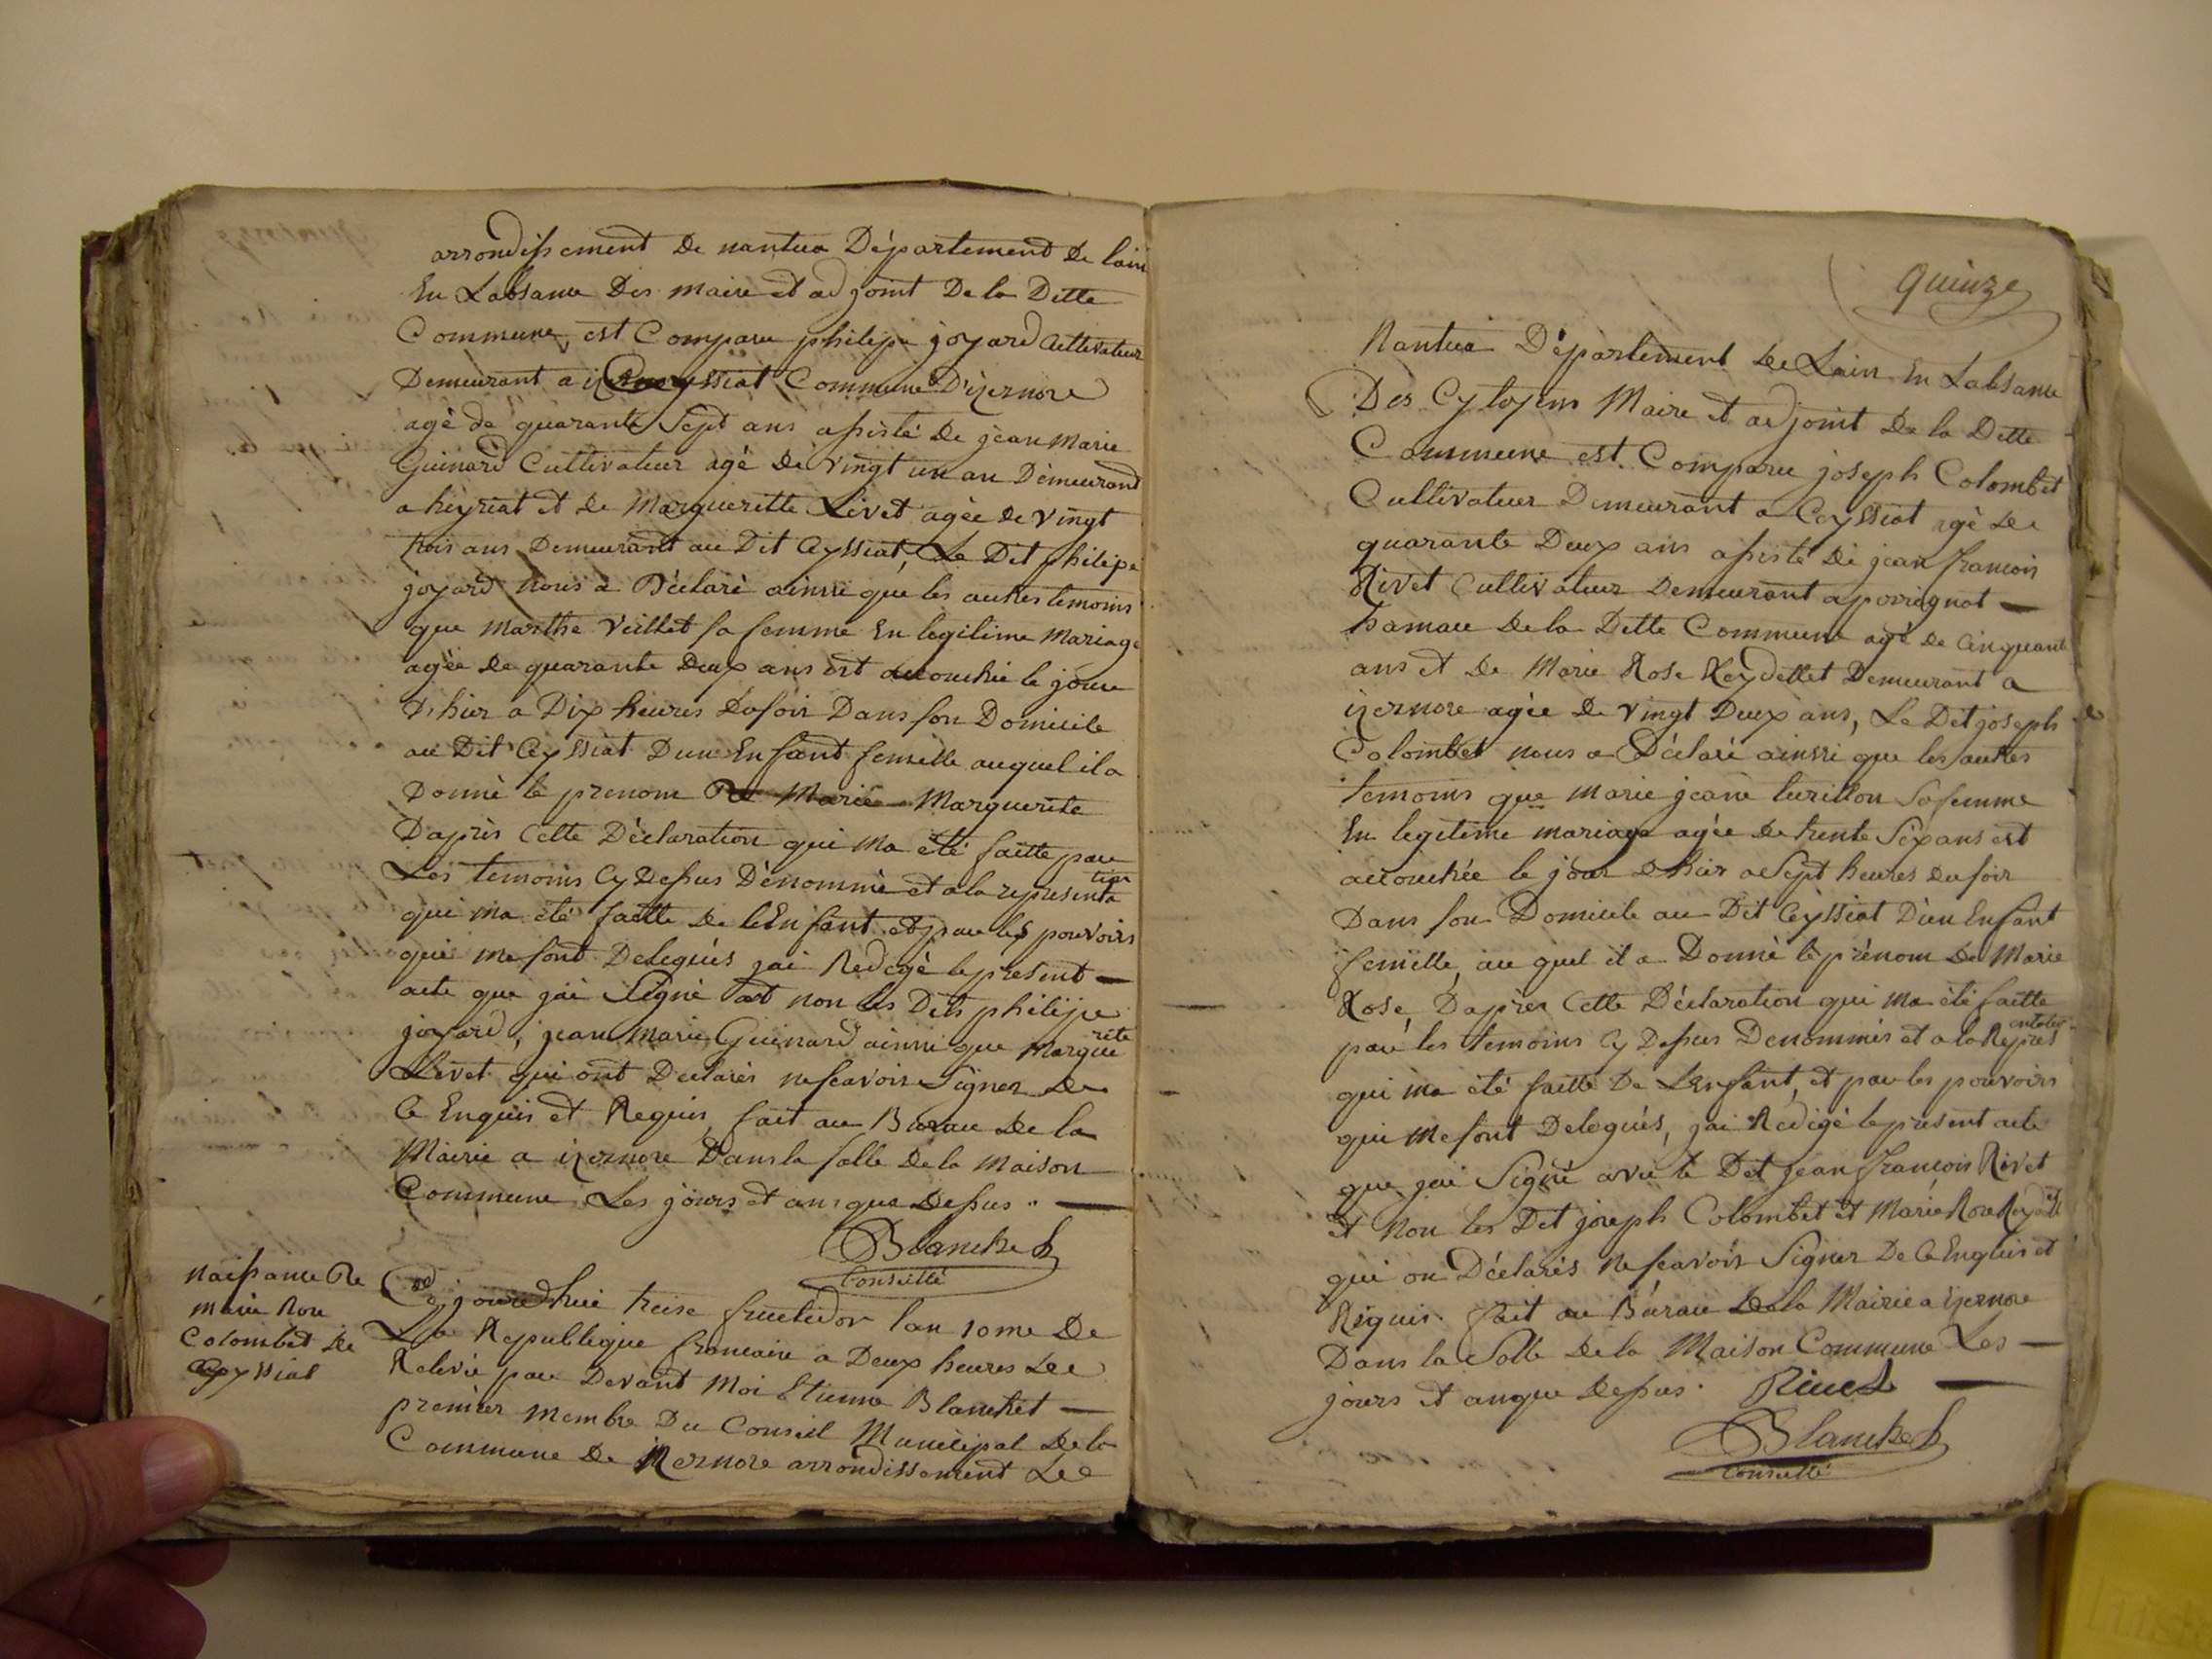 arrondissement De nantua Département De lain
En Labsance Des maire et adjoint De la Ditte
Commune, est Comparu philipe joyard Cultivateur
Demeurant a Ceyssiat Commune D'izernore
agé de quarante Sept ans assisté De jean Marie
Guinard Cultivateur agé De vingt un an Démeurant
a heyriat et de Marguerite Livet agée De vingt
trois ans Demeurant au Dit Ceyssiat, Le Dit philipe
joyard nous a Déclaré ainssi que les autres temoins
que Marthe Veillet sa femme En legitime Mariage
agée De quarante Deux ans est accouchée le jour
D'hier a Dix heures Dusoir Dans son Domicile
au Dit Ceyssiat Dun Enfant femelle auquel il a
Donné le prenom De Marie Marguerite
Daprès Cette Déclaration qui ma été faitte par
Les temoins Cy Dessus Dénommé et ala représenta tion
qui ma été faitte De lEnfant et par les pouvoirs
qui me sont Delegués jai Redigé le présent
acte que jai Signé et non les Dits philipe
joyard, jean Marie Guinard ainssi que Margue rite
Livet qui ont Déclarés nescavoir Signer De
Ce Enquis et Requis, fait au Bureau De la
Mairie a izernore Dans la salle De la Maison
Commune Les jours et an que Dessus
Blanchet
Conseillé
Naissance De
marie Rose
Colombet De
Ceyssiat
Ce jourdhui treise fructidor lan 10me De
La Republique francaise a Deux heures De
Relevée par Devant Moi Etienne Blanchet
premier Membre Du Conseil Municipal De la
Commune De izernore arrondissement De
quinze
Nantua Département De Lain En Labsance
Des Cytoyens Maire et adjoint De la Ditte
Commune est Comparu joseph Colombet
Cultivateur Demeurant a Ceyssiat agé De
quarante Deux ans assisté De jean francois
Rivet Cultivateur Demeurant a perignat
hamau De la Ditte Commune agé de Cinquante
ans et De Marie Rose Reydellet Demeurant a
izernore agée De vingt Deux ans, Le Dit joseph
Colombet nous a Déclaré ainssi que les autres
temoins que Marie jeane Sa femme
En legitime mariage agée De trente Six ans est
accouchée le jour Dhier a Sept heures Dusoir
Dans son Domicile au Dit Ceyssiat Dun Enfant
femelle, au quel il a Donné le prénom De Marie
Rose, Daprès Cette Déclaration qui ma été faitte
par les temoins Cy Dessus Denommés et a la Repres entation
qui ma été faitte De LEnfant, et par les pouvoirs
qui me sont Delegués, jai Redigé le présent acte
que jai Signé avec le Dit jean francois Rivet
et Non les Dit joseph Colombet et Marie Rose Reydellet
qui on Déclarés Nescavoir Signer De Ce Enquis et
Réquis. fait au Bureau De la Mairie a izernore
Dans la Salle De la Maison Commune Les
jours et an que Dessus. Rivet
Blanchet
Conseillé